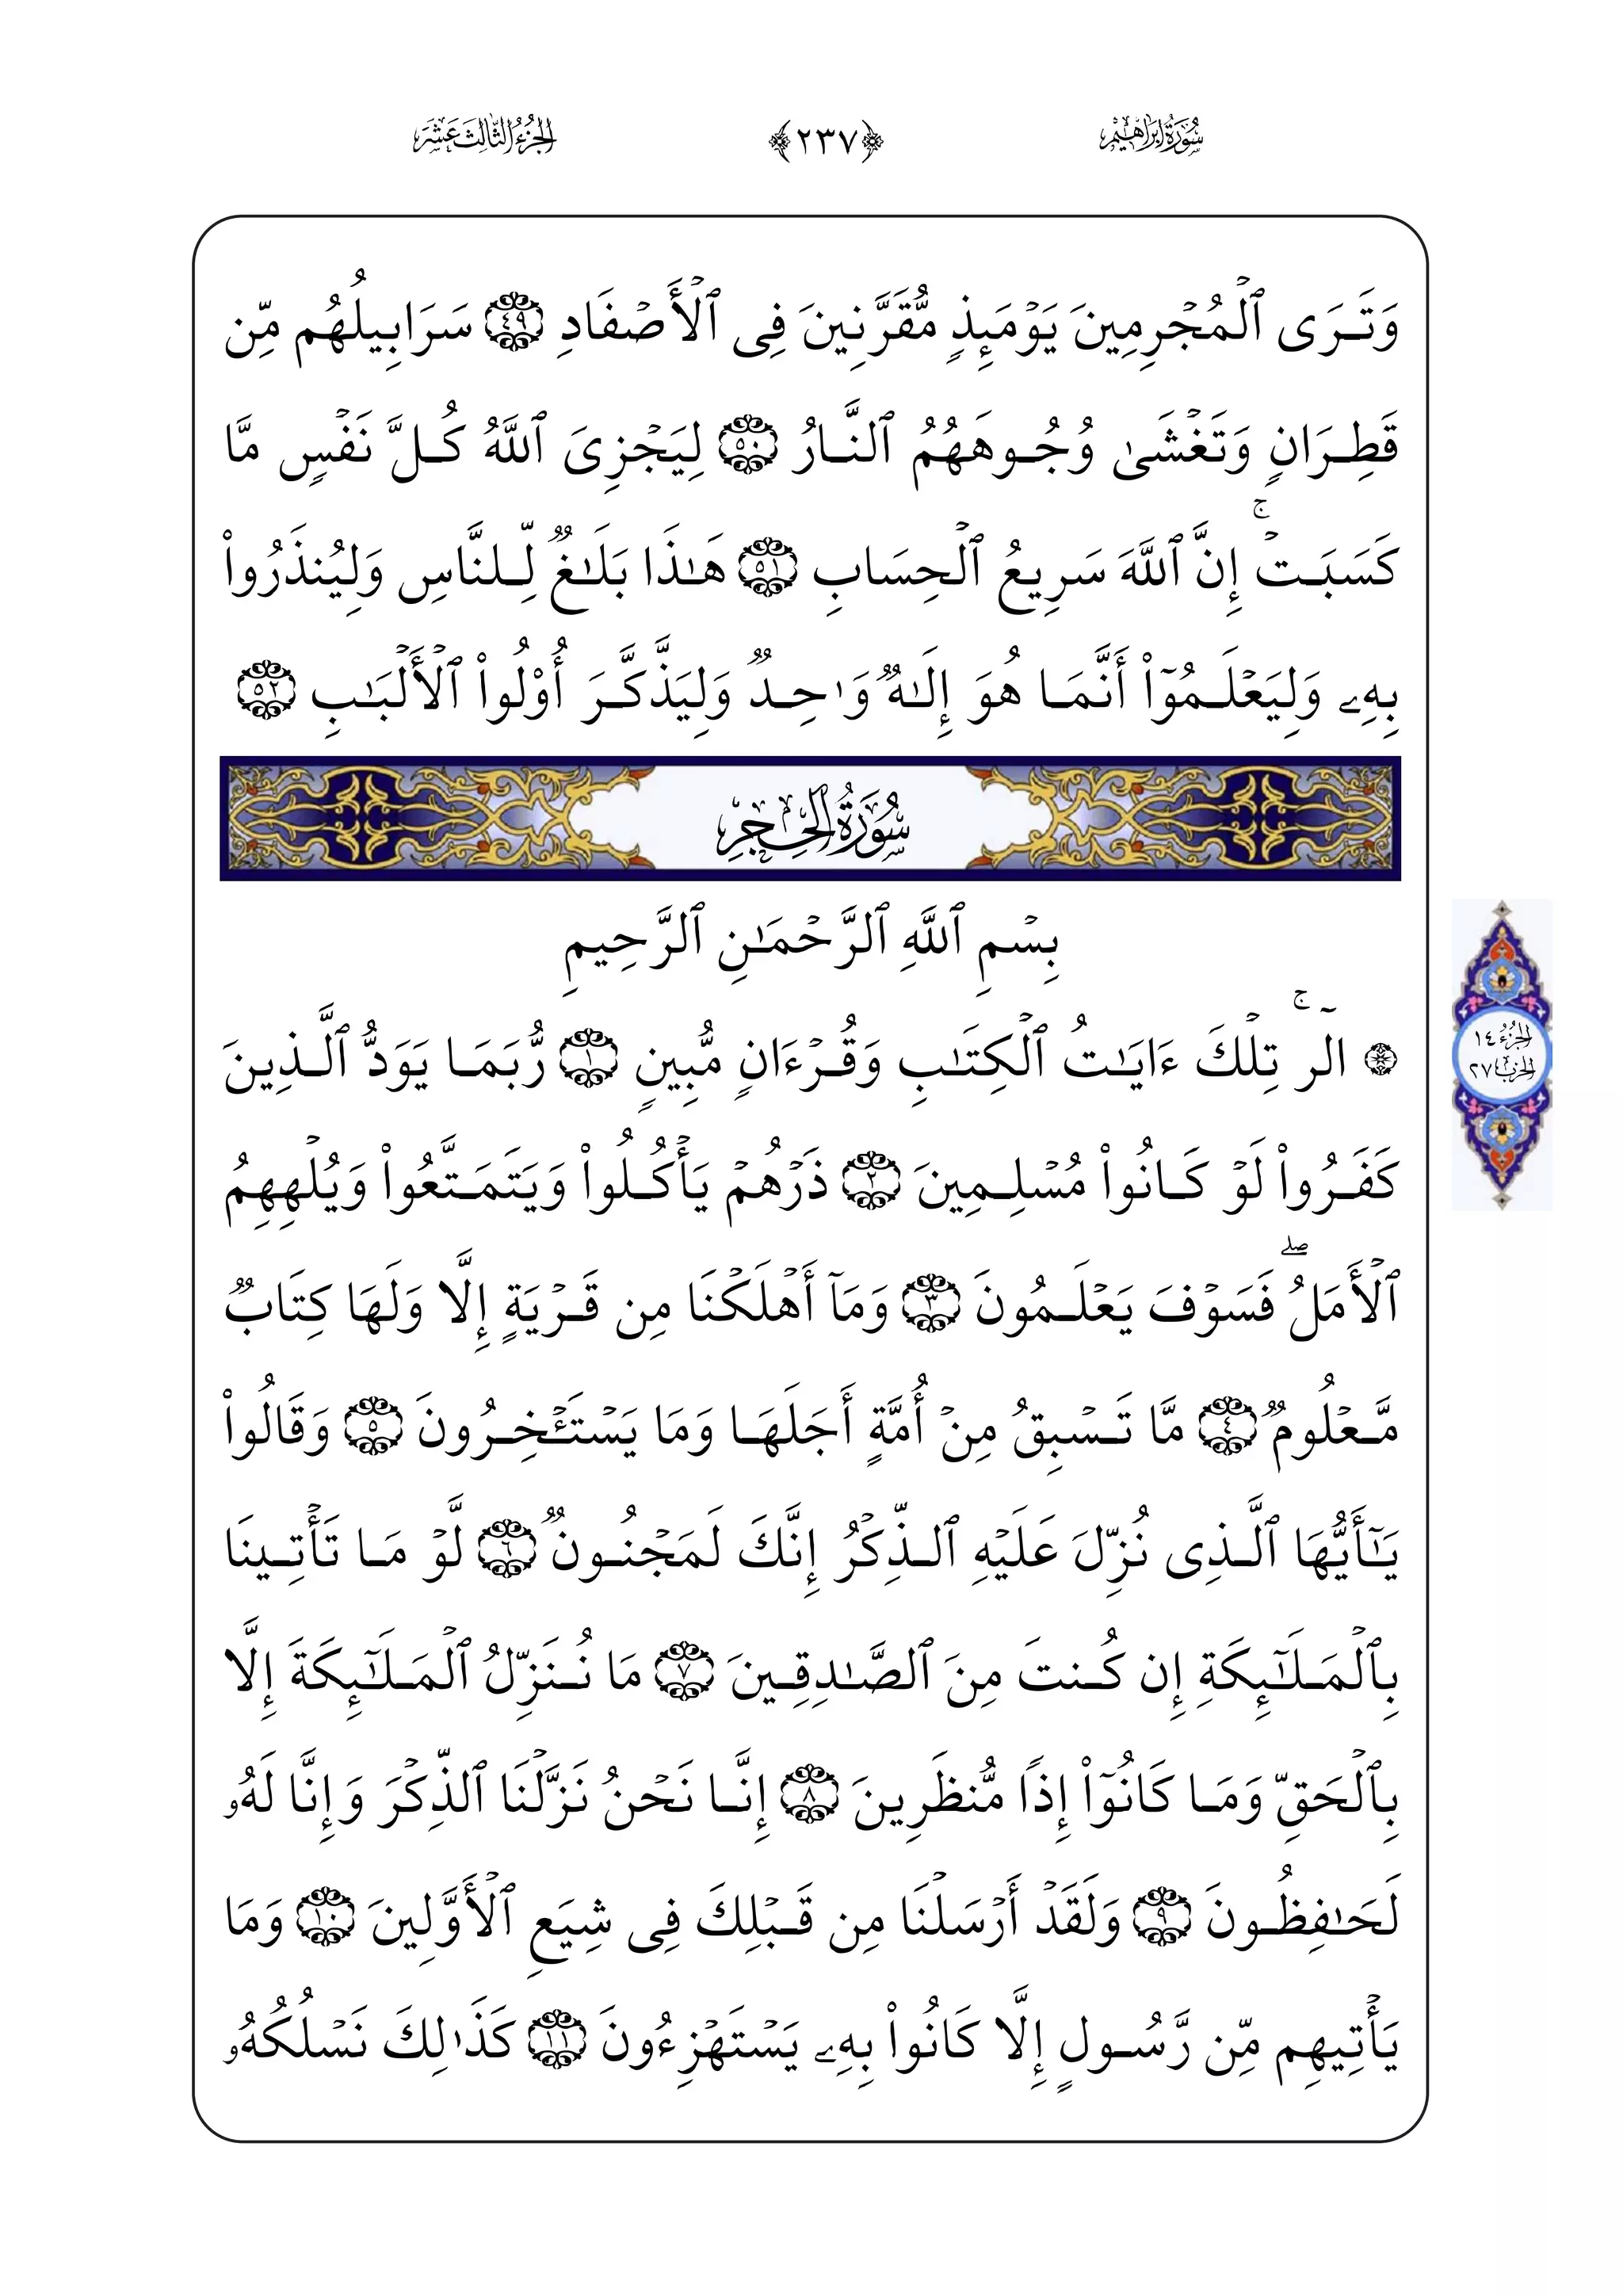 سُورَةُ إِبۡرَاهِيم ﴿٢٣٧﴾ الجُزْءُ الثَّالِثَ عَشَرَ
وَتَرَى ٱلۡمُجۡرِمِينَ يَوۡمَئِذٖ مُّقَرَّنِينَ فِي ٱلۡأَصۡفَادِ ٤٩ سَرَابِيلُهُم مِّن
قَطِرَانٖ وَتَغۡشَىٰ وُجُوهَهُمُ ٱلنَّارُ ٥٠ لِيَجۡزِيَ ٱللَّهُ كُلَّ نَفۡسٖ مَّا
كَسَبَتۡۚ إِنَّ ٱللَّهَ سَرِيعُ ٱلۡحِسَابِ ٥١ هَٰذَا بَلَٰغٞ لِّلنَّاسِ وَلِيُنذَرُواْ
بِهِۦ وَلِيَعۡلَمُوٓاْ أَنَّمَا هُوَ إِلَٰهٞ وَٰحِدٞ وَلِيَذَّكَّرَ أُوْلُواْ ٱلۡأَلۡبَٰبِ ٥٢
سُورَةُ الحِجۡرِ
بِسۡمِ ٱللَّهِ ٱلرَّحۡمَٰنِ ٱلرَّحِيمِ
۞ الٓرۚ تِلۡكَ ءَايَٰتُ ٱلۡكِتَٰبِ وَقُرۡءَانٖ مُّبِينٖ ١ رُّبَمَا يَوَدُّ ٱلَّذِينَ
كَفَرُواْ لَوۡ كَانُواْ مُسۡلِمِينَ ٢ ذَرۡهُمۡ يَأۡكُلُواْ وَيَتَمَتَّعُواْ وَيُلۡهِهِمُ
ٱلۡأَمَلُۖ فَسَوۡفَ يَعۡلَمُونَ ٣ وَمَآ أَهۡلَكۡنَا مِن قَرۡيَةٍ إِلَّا وَلَهَا كِتَابٞ
مَّعۡلُومٞ ٤ مَّا تَسۡبِقُ مِنۡ أُمَّةٍ أَجَلَهَا وَمَا يَسۡتَـٔۡخِرُونَ ٥ وَقَالُواْ
يَٰٓأَيُّهَا ٱلَّذِي نُزِّلَ عَلَيۡهِ ٱلذِّكۡرُ إِنَّكَ لَمَجۡنُونٞ ٦ لَّوۡ مَا تَأۡتِينَا
بِٱلۡمَلَٰٓئِكَةِ إِن كُنتَ مِنَ ٱلصَّٰدِقِينَ ٧ مَا نُنَزِّلُ ٱلۡمَلَٰٓئِكَةَ إِلَّا
بِٱلۡحَقِّ وَمَا كَانُوٓاْ إِذٗا مُّنظَرِينَ ٨ إِنَّا نَحۡنُ نَزَّلۡنَا ٱلذِّكۡرَ وَإِنَّا لَهُۥ
لَحَٰفِظُونَ ٩ وَلَقَدۡ أَرۡسَلۡنَا مِن قَبۡلِكَ فِي شِيَعِ ٱلۡأَوَّلِينَ ١٠ وَمَا
يَأۡتِيهِم مِّن رَّسُولٍ إِلَّا كَانُواْ بِهِۦ يَسۡتَهۡزِءُونَ ١١ كَذَٰلِكَ نَسۡلُكُهُۥ
الجُزْءُ ١٤
الحِزْب ٢٧